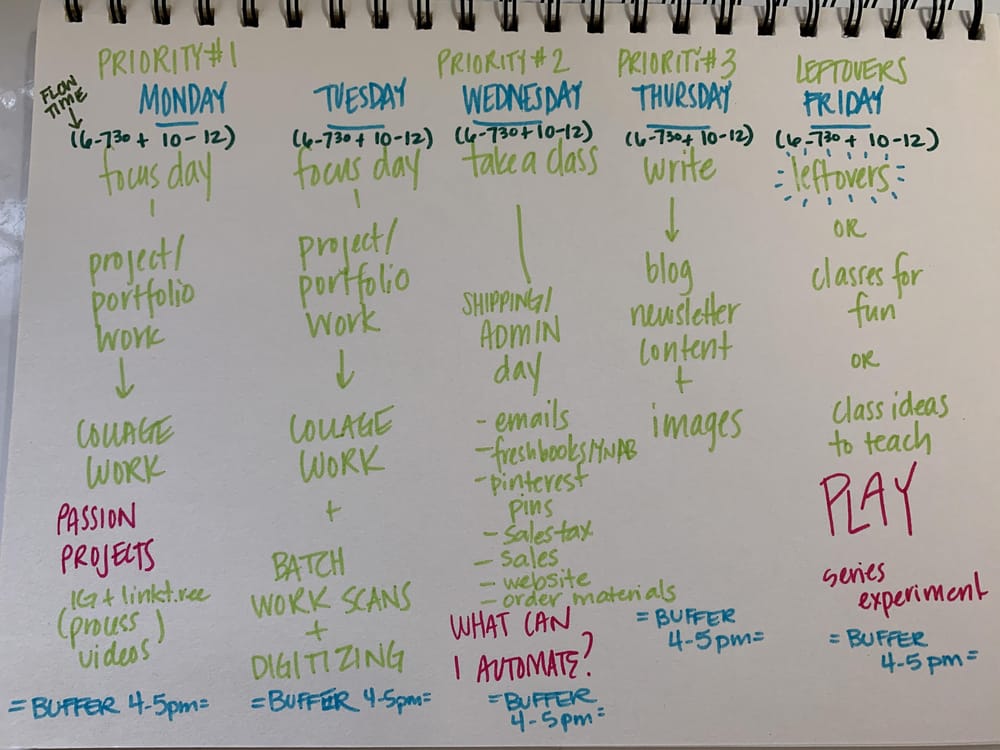 PRIORITY #1
FLOW
TIME
MONDAY
(6-7³⁰ + 10-12)
focus day
project/
portfolio
work
COLLAGE
WORK
PASSION
PROJECTS
IG + linkt.ree
(process
videos)
= BUFFER 4-5pm =
TUESDAY
(6-7³⁰ + 10-12)
focus day
project/
portfolio
work
COLLAGE
WORK
+
BATCH
WORK SCANS
+
DIGITIZING
= BUFFER 4-5pm =
PRIORITY #2
WEDNESDAY
(6-7³⁰ + 10-12)
take a class
SHIPPING/
ADMIN
day
- emails
- freshbooks/YNAB
- pinterest
pins
- Sales tax
- sales
- website
- order materials
WHAT CAN
I AUTOMATE?
= BUFFER
4-5pm =
PRIORITi #3
THURSDAY
(6-7³⁰ + 10-12)
write
blog
newsletter
content
+
images
= BUFFER
4-5pm =
LEFTOVERS
FRIDAY
(6-7³⁰ + 10-12)
leftovers
OR
classes for
fun
OR
class ideas
to teach
PLAY
series
experiment
= BUFFER
4-5pm =